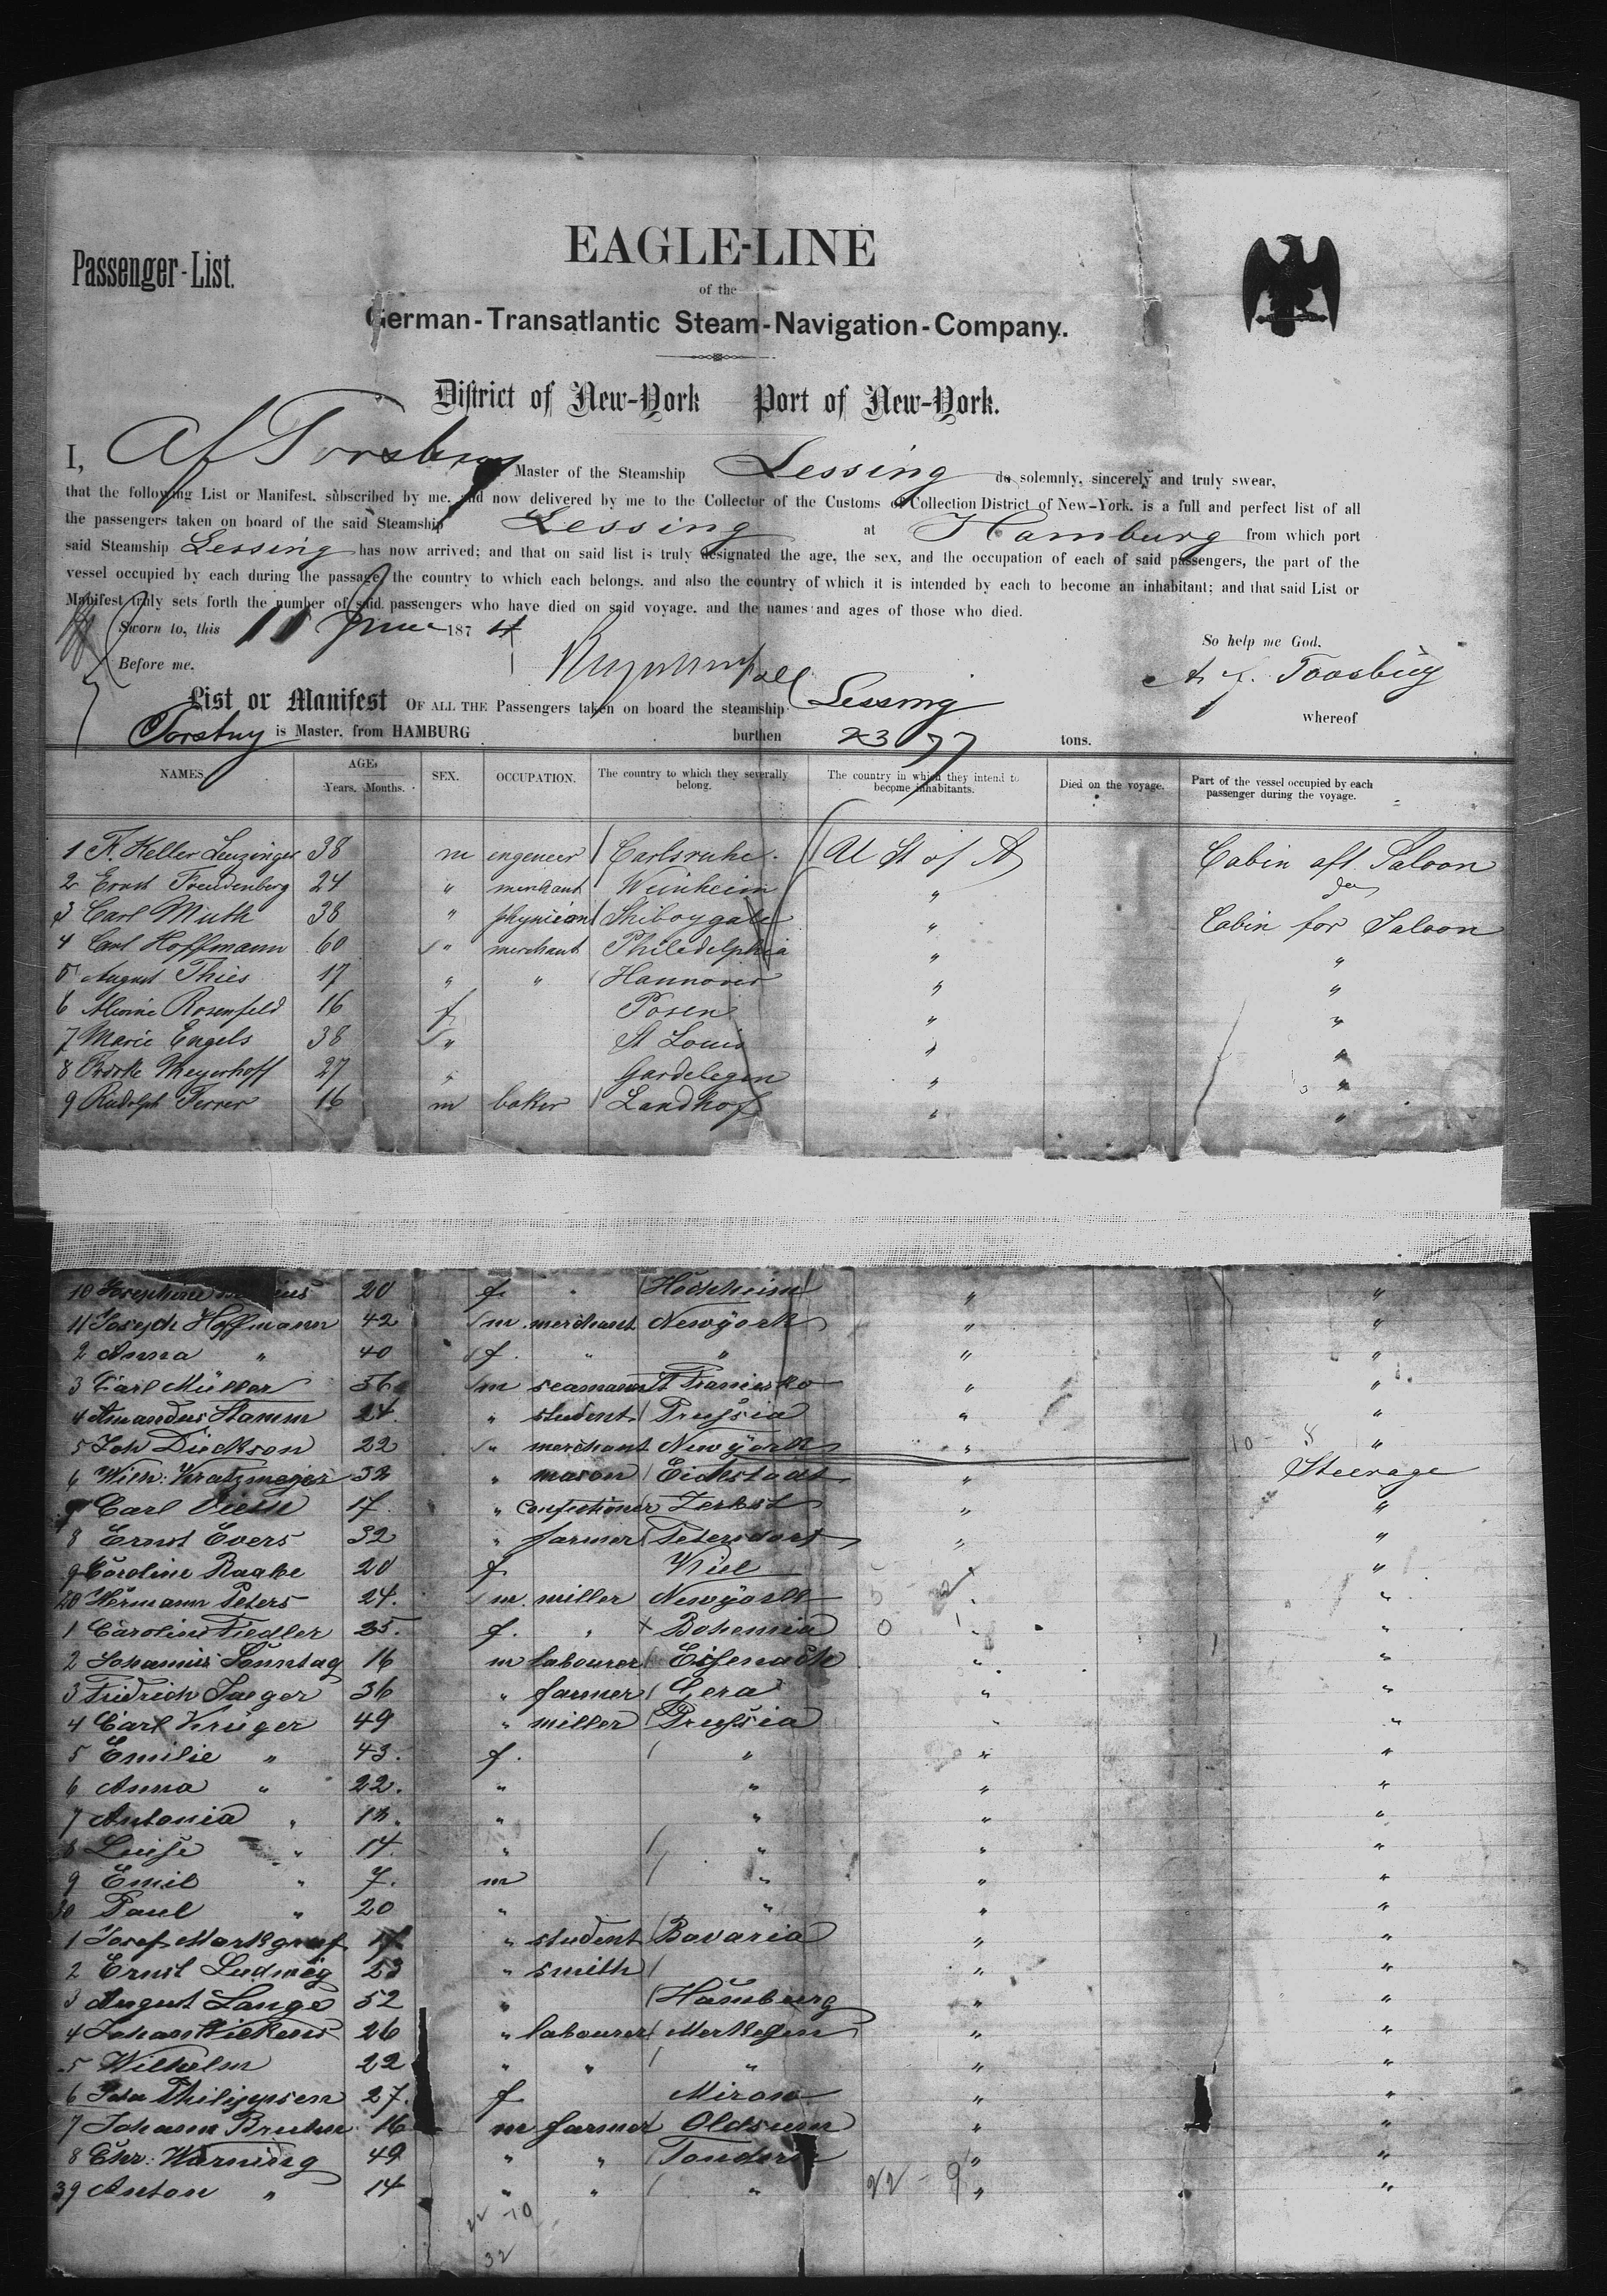 Passenger-List.
EAGLE-LINE
of the
German-Transatlantic Steam-Navigation-Company.
District of New-York Port of New-York.
I, Master of the Steamship Lessing do solemnly, sincerely and truly swear,
that the following List or Manifest, subscribed by me, and now delivered by me to the Collector of the Customs of Collection District of New-York, is a full and perfect list of all
the passengers taken on board of the said Steamship Lessing at Hamburg from which port
said Steamship Lessing has now arrived; and that on said list is truly designated the age, the sex, and the occupation of each of said passengers, the part of the
vessel occupied by each during the passage, the country to which each belongs, and also the country of which it is intended by each to become an inhabitant; and that said List or
Manifest truly sets forth the number of said passengers who have died on said voyage, and the names and ages of those who died.
Sworn to, this 11 June 1874
So help me God.
Before me.
List or Manifest OF ALL THE Passengers taken on board the steamship Lessing whereof
is Master, from HAMBURG burthen tons.
NAMES. AGE. Years. Months. SEX. OCCUPATION. The country to which they severally belong. The country in which they intend to become inhabitants. Died on the voyage. Part of the vessel occupied by each passenger during the voyage.
1 F. Keller Leuzinger 38 m engeneer Carlsruhe. U St of A Cabin aft Saloon
2 Ernst Freudenberg 24 " merchant Weinheim " do
3 Carl Muth 38 " physician " Cabin for Saloon
4 Carl Hoffmann 60 " merchant Philedelphia " "
5 August Thies 17 " " Hannover " "
6 Rosenfeld 16 f Posen " "
7 Marie Engels 38 " St Louis " "
8 Meyerhoff 27 " Gardelegen " "
9 Rudolph Ferrer 16 m baker Landhof " "
10 Josephine 20 f. " "
11 Joseph Hoffmann 42 m merchant Newyork " "
2 Anna " 40 f. " " " "
3 Carl Müller 56 m seamann St Franiesko " "
4 Amandus Stamm 24. " student Prussia " "
5 Joh Dickson 22 " merchant Newyork " "
6 Wilh: Kratzmeyer 32 " mason Eichstadt " Steerage
7 Carl 17. " Confectioner Zerbst " "
8 Ernst Evers 32 " farmer Petersdorf " "
9 Caroline Raabe 20 f Kiel " "
20 Hermann Peters 24. m. miller Newyork " "
1 Caroline Fiedler 25. f. " Bohemia " "
2 Johannis Sonntag 16 m labourer Eisenach " "
3 Fridrich Jaeger 36 " farmer Gera " "
4 Carl Krüger 49 " miller Prussia " "
5 Emilie " 43. f. " " "
6 Anna " 22. " " " "
7 Antonia " " " " "
8 Luise " 14. " " " "
9 Emil " 7. m " " "
30 Paul " 20 " " " "
1 Josef Markgraf 17 " student Bavaria " "
2 Ernst Ludwig 23 " smith " "
3 August Lange 52 " Hamburg " "
4 Johan Wickens 26 " labourer " "
5 Wilhelm 22 " " " " "
6 Philippsen 27. f Mirow " "
7 Johann Bruhn 16 m farmer Oldsum " "
8 Chr: Warnidg 49 " " Tondern " "
39 Anton " 14 " " " 22 - 9 " "
22 - 10
32